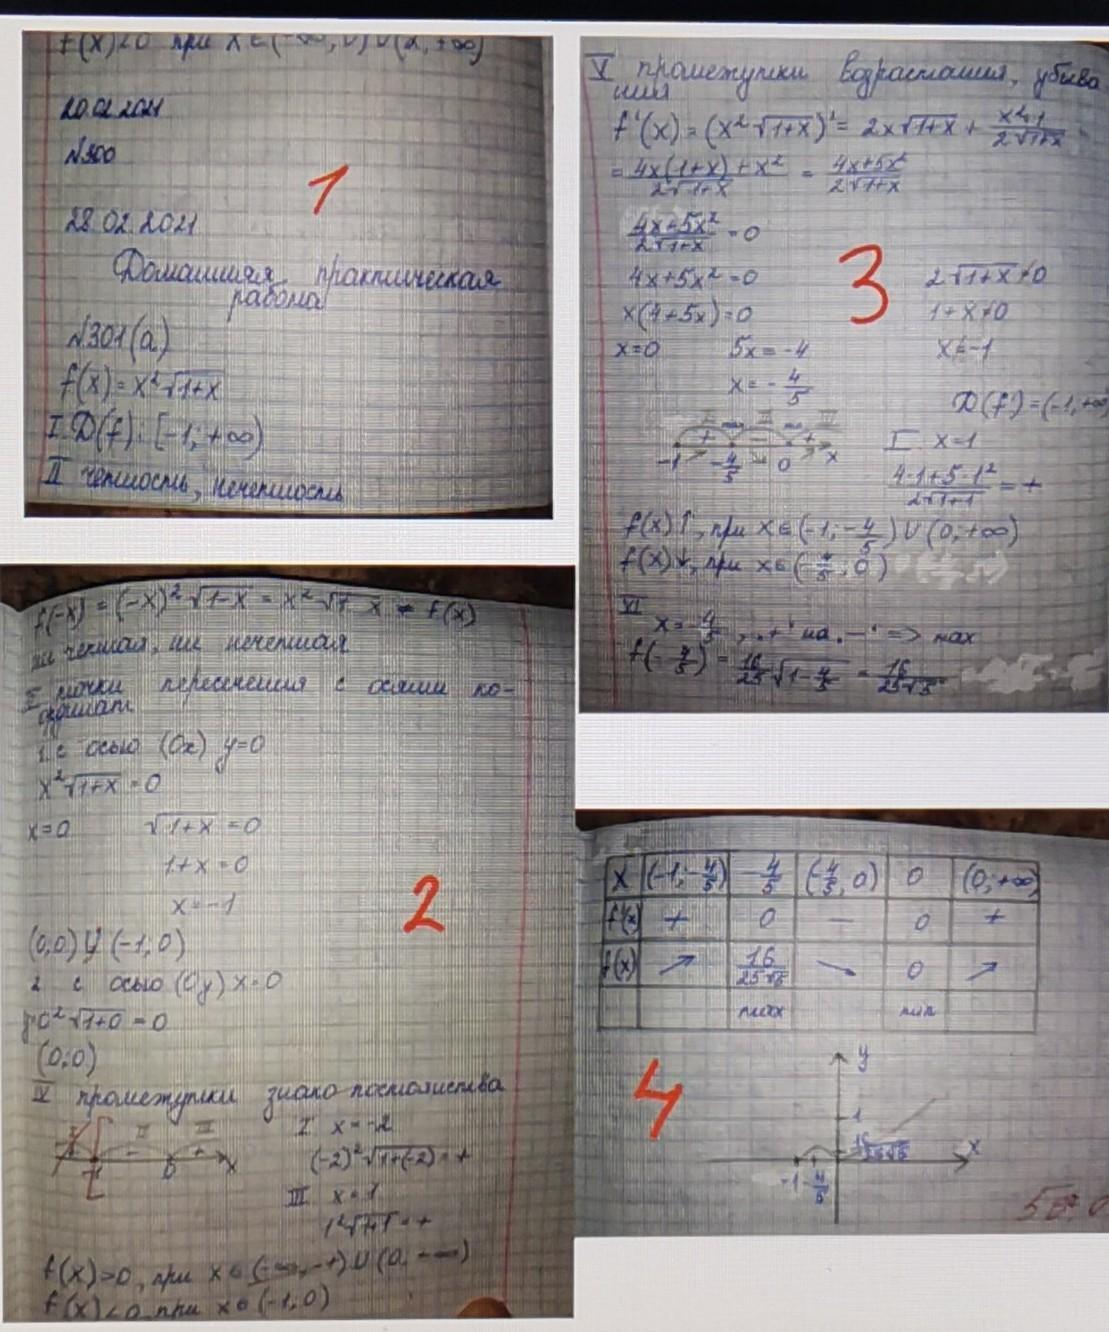 f(x)<0 при x∈(-∞,0)∪(2,+∞)
20.02.2021
№300
1
28.02.2021
Домашняя практическая
работа
№301(а)
f(x)=x²√1+x
I D(f): [-1;+∞)
II четность, нечетность
f(-x) = (-x)²√1-x = x²√1-x ≠ f(x)
ни четная, ни нечетная
точки пересечения с осями ко-
ординат
1. с осью (Ox) y=0
x²√1+x = 0
x=0 √1+x = 0
1+x=0
x=-1
2
(0,0) ∪ (-1,0)
2 с осью (Oy) x=0
y=0²√1+0 = 0
(0;0)
IV промежутки знако постоянства
I II III
-1 0 x
I x=-2
(-2)²√1+(-2) = +
III x=1
1²√1+1 = +
f(x)>0, при x∈(-∞,-1)∪(0,+∞)
f(x)<0 при x∈(-1,0)
V промежутки возрастания, убыва
ния
f'(x) = (x²√1+x)' = 2x√1+x + x²·1/2√1+x
= 4x(1+x)+x²/2√1+x = 4x+5x²/2√1+x
4x+5x²/2√1+x = 0
4x+5x²=0 2√1+x≠0
x(4+5x)=0 1+x≠0
x=0 5x=-4 x≠-1
x=-4/5
3
D(f')=(-1,+∞)
I II III
+ - +
-1 -4/5 0 x
I x=1
4·1+5·1²/2√1+1 = +
f(x)↑, при x∈(-1;-4/5)∪(0,+∞)
f(x)↓, при x∈(-4/5;0)
VI
x=-4/5, „+" на „-" => max
f(-4/5) = 16/25√1-4/5 = 16/25√5
x (-1;-4/5) -4/5 (-4/5,0) 0 (0;+∞)
f'(x) + 0 - 0 +
f(x) ↗ 16/25√5 ↘ 0 ↗
max min
4
y
1
16/25√5
x
-1 -4/5